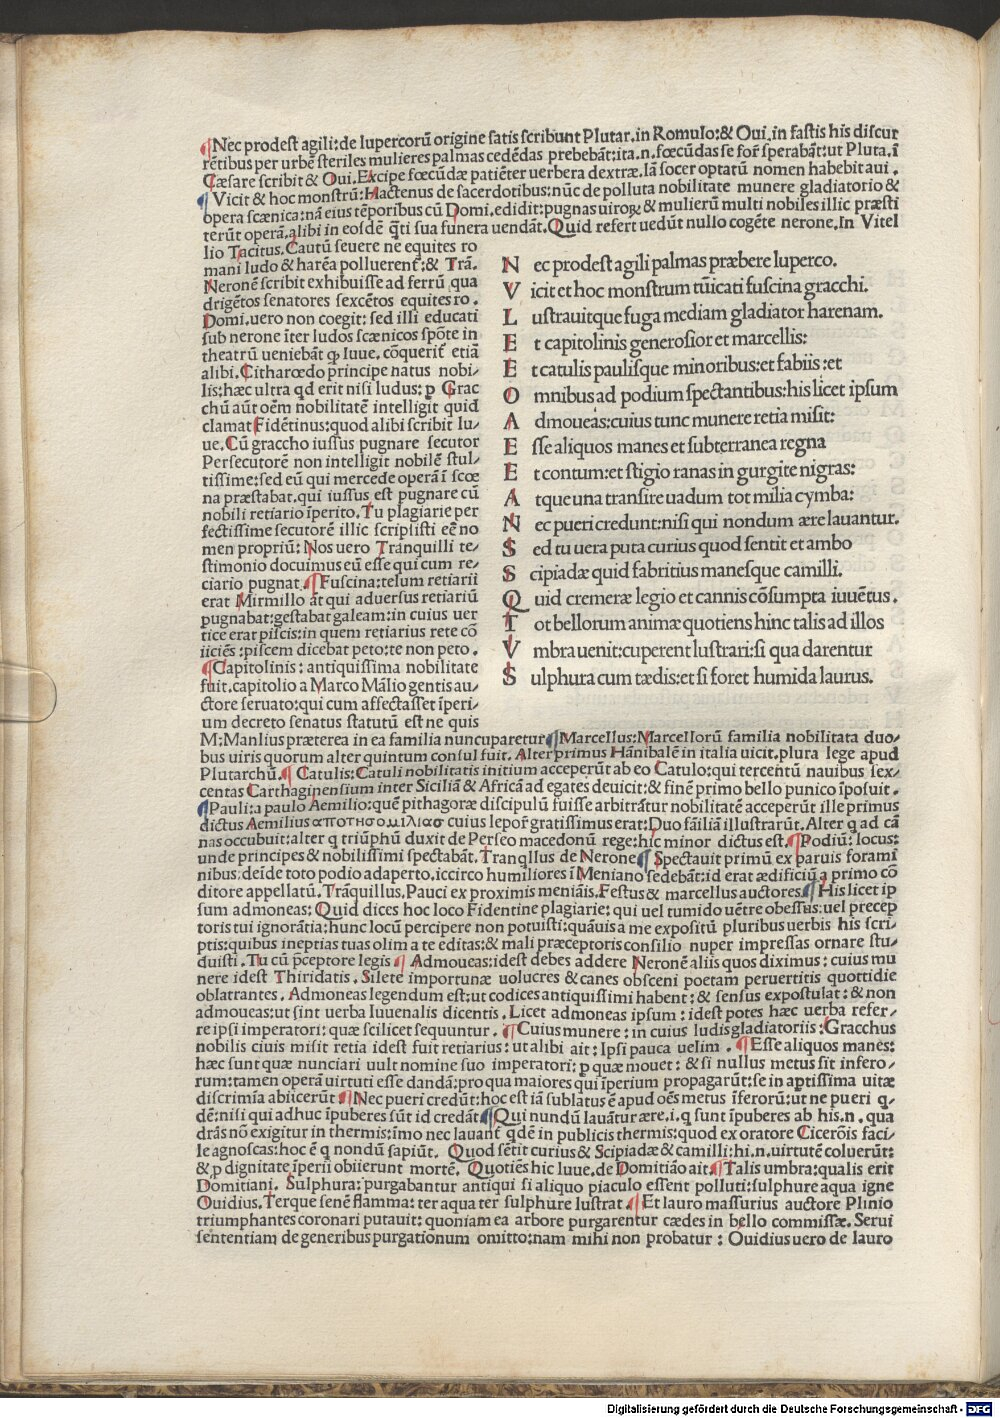 ¶Nec prodest agili:de lupercorū origine satis scribunt Plutar.in Romulo:& Oui.in fastis his discur
rētibus per urbē steriles mulieres palmas cedēdas prebebāt:ita.n.fœcūdas se for̄ sperabāt:ut Pluta.ī
Cæsare scribit & Oui.Excipe fœcūdæ patiēter uerbera dextræ.Iā socer optatū nomen habebit aui.
¶Vicit & hoc monstrū:Hactenus de sacerdotibus:nūc de polluta nobilitate munere gladiatorio &
opera scænica:nā eius tēporibus cū Domi.edidit:pugnas uiroꝝ & mulierū multi nobiles illic præsti
terūt operā.alibi in eosdē q̄ti sua funera uendāt.Quid refert uedūt nullo cogēte nerone.In Vitel
lio Tacitus.Cautū seuere ne equites ro
mani ludo & harēa polluerent̄:& Trā.
Neronē scribit exhibuisse ad ferrū qua
drigētos senatores sexcētos equites ro.
Domi.uero non coegit:sed illi educati
sub nerone īter ludos scænicos spōte in
theatrū ueniebāt ꝙ Iuue.cōquerit̄ etiā
alibi.Citharœdo principe natus nobi/
lis:hæc ultra qd erit nisi ludus:ꝑ Grac
chū aūt oēm nobilitatē intelligit quid
clamat Fidētinus:quod alibi scribit Iu/
ue.Cū graccho iussus pugnare secutor
Persecutorē non intelligit nobilē stul/
tissime:sed eū qui mercede operā ī scœ
na præstabat.qui iussus est pugnare cū
nobili retiario īperito.Tu plagiarie per
fectissime secutorē illic scripsisti eē no
men propriū:Nos uero Tranquilli te/
stimonio docuimus eū esse qui cum re/
ciario pugnat.¶Fuscina:telum retiarii
erat Mirmillo at qui aduersus retiariū
pugnabat:gestabat galeam:in cuius uer
tice erat piscis:in quem retiarius rete cō
iiciēs:piscem dicebat peto:te non peto.
¶Capitolinis:antiquissima nobilitate
fuit.capitolio a Marco Mālio gentis au/
ctore seruato:qui cum affectasset īperi/
um decreto senatus statutū est ne quis
N ec prodest agili palmas præbere luperco.
V icit et hoc monstrum tūicati fuscina gracchi.
L ustrauitque fuga mediam gladiator harenam.
E t capitolinis generosior et marcellis:
E t catulis paulisque minoribus:et fabiis:et
O mnibus ad podium spectantibus:his licet ipsum
A dmoueas:cuius tunc munere retia misit:
E sse aliquos manes et subterranea regna
E t contum:et stigio ranas in gurgite nigras:
A tque una transire uadum tot milia cymba:
N ec pueri credunt:nisi qui nondum ære lauantur.
S ed tu uera puta curius quod sentit et ambo
S cipiadæ quid fabritius manesque camilli.
Q uid cremeræ legio et cannis cōsumpta iuuētus.
T ot bellorum animæ quotiens hinc talis ad illos
V mbra uenit:cuperent lustrari:si qua darentur
S ulphura cum tædis:et si foret humida laurus.
M;Manlius præterea in ea familia nuncuparetur ¶Marcellus:Marcellorū familia nobilitata duo/
bus uiris quorum alter quintum consul fuit.Alter primus Hānibalē in italia uicit.plura lege apud
Plutarchū.¶ Catulis:Catuli nobilitatis initium acceperūt ab eo Catulo:qui tercentū nauibus sex/
centas Carthaginensium inter Siciliā & Africā ad egates deuicit:& finē primo bello punico īposuit.
¶Pauli:a paulo Aemilio:quē pithagoræ discipulū fuisse arbitrātur nobilitatē acceperūt ille primus
dictus Aemilius αποτησομιλιασ cuius lepor̄ gratissimus erat:Duo fāiliā illustrarūt.Alter q ad cā
nas occubuit:alter q triūphū duxit de Perseo macedonū rege:hic minor dictus est.¶Podiū:locus:
unde principes & nobilissimi spectabāt.Tranqllus de Nerone ¶ Spectauit primū ex paruis forami
nibus:deīde toto podio adaperto.iccirco humiliores ī Meniano sedebāt:id erat ædificiū a primo cō
ditore appellatū.Trāquillus.Pauci ex proximis meniāis.Festus & marcellus auctores.¶His licet ip
sum admoneas:Quid dices hoc loco Fidentine plagiarie:qui uel tumido uētre obessus:uel precep
toris tui ignorātia:hunc locū percipere non potuisti:quāuis a me expositū pluribus uerbis his scri/
ptis:quibus ineptias tuas olim a te editas:& mali præceptoris consilio nuper impressas ornare stu/
duisti.Tu cū p̄ceptore legis ¶ Admoueas:idest debes addere Neronē aliis quos diximus:cuius mu
nere idest Thiridatis.Silete importunæ uolucres & canes obsceni poetam peruertitis quottidie
oblatrantes.Admoneas legendum est:ut codices antiquissimi habent:& sensus expostulat:& non
admoueas:ut sint uerba Iuuenalis dicentis.Licet admoneas ipsum:idest potes hæc uerba refer/
re ipsi imperatori:quæ scilicet sequuntur.¶Cuius munere:in cuius ludis gladiatoriis:Gracchus
nobilis ciuis misit retia idest fuit retiarius:ut alibi ait:Ipsi pauca uelim.¶Esse aliquos manes:
hæc sunt quæ nunciari uult nomine suo imperatori:ꝑ quæ mouet:& si nullus metus sit infero/
rum:tamen operā uirtuti esse dandā:pro qua maiores qui īperium propagarūt:se in aptissima uitæ
discrimīa abiicerūt ¶Nec pueri credūt:hoc est iā sublatus ē apud oēs metus īferorū:ut ne pueri q/
dē:nisi qui adhuc īpuberes sūt id credāt ¶Qui nundū lauātur ære.i.q sunt īpuberes ab his.n.qua
drās nō exigitur in thermis:īmo nec lauant̄ qdē in publicis thermis:quod ex oratore Cicerōis faci/
le agnoscas:hoc ē q nondū sapiūt. Quod sētit curius & Scipiadæ & camilli:hi.n.uirtutē coluerūt:
& ꝑ dignitate īperii obiierunt mortē. Quotiēs hic Iuue.de Domitiāo ait.¶Talis umbra:qualis erit
Domitiani. Sulphura:purgabantur antiqui si aliquo piaculo essent polluti:sulphure aqua igne
Ouidius.Terque senē flamma:ter aqua ter sulphure lustrat.¶Et lauro massurius auctore Plinio
triumphantes coronari putauit:quoniam ea arbore purgarentur cædes in bello commissæ.Serui
sententiam de generibus purgationum omitto:nam mihi non probatur:Ouidius uero de lauro
Digitalisierung gefördert durch die Deutsche Forschungsgemeinschaft - DFG